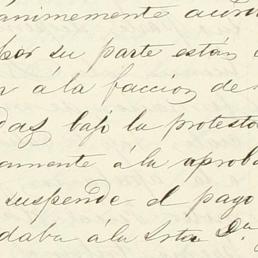 ánimemente aun
por su parte están
á la faccion de
das, bajo la protesta
amente á la aproba
suspende el pago
daba á la Srta Da